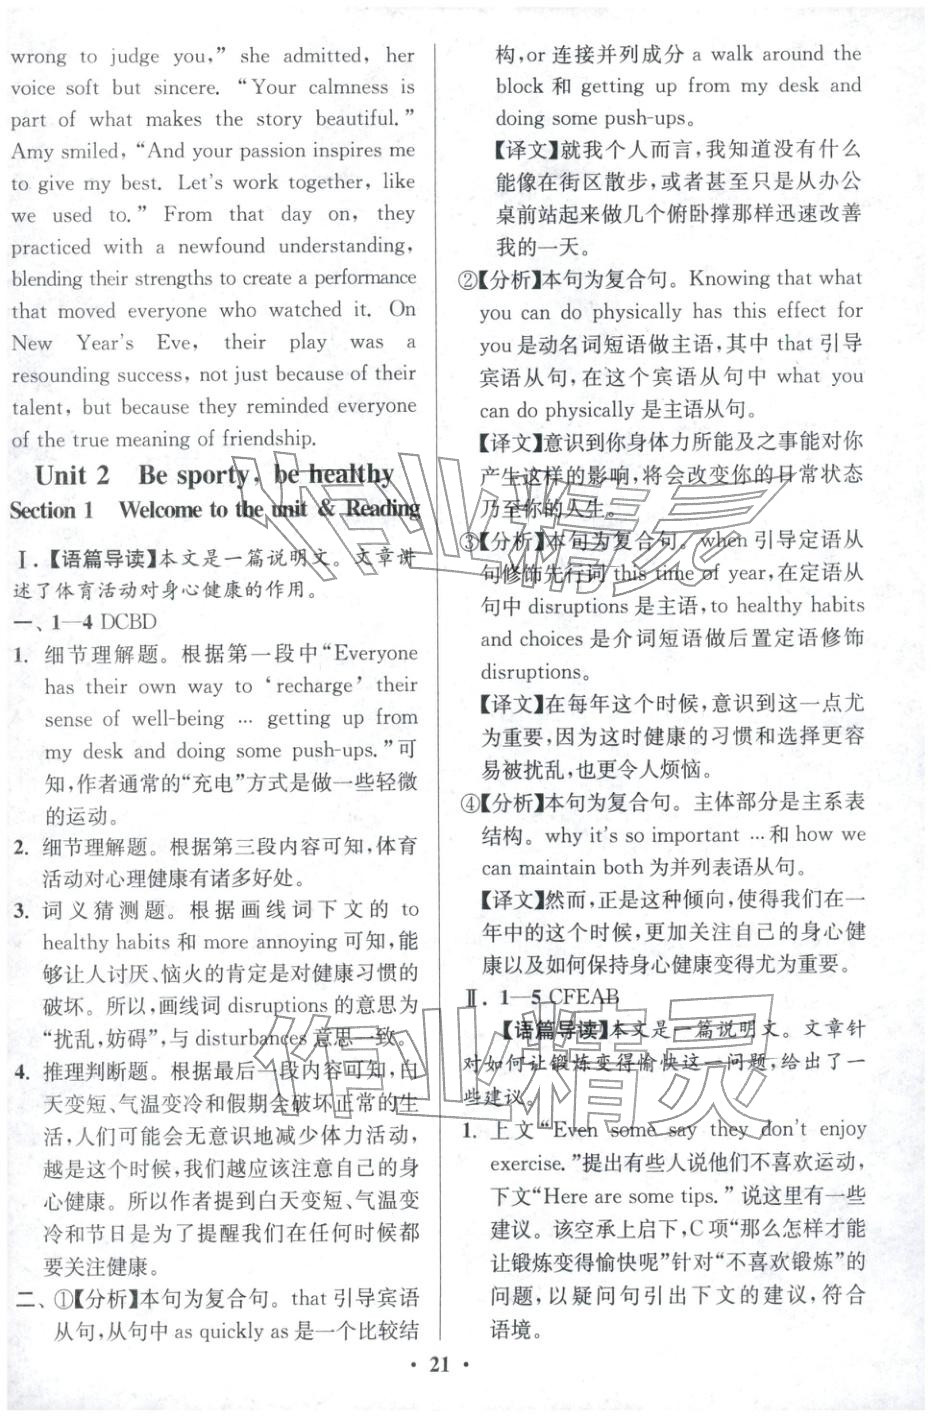 wrong to judge you,” she admitted, her
voice soft but sincere. “Your calmness is
part of what makes the story beautiful.”
Amy smiled, “And your passion inspires me
to give my best. Let's work together, like
we used to.” From that day on, they
practiced with a newfound understanding,
blending their strengths to create a performance
that moved everyone who watched it. On
New Year's Eve, their play was a
resounding success, not just because of their
talent, but because they reminded everyone
of the true meaning of friendship.
Unit 2 Be sporty, be healthy
Section 1 Welcome to the unit & Reading
Ⅰ.【语篇导读】本文是一篇说明文。文章讲
述了体育活动对身心健康的作用。
一、1—4 DCBD
1. 细节理解题。根据第一段中“Everyone
has their own way to ‘recharge’ their
sense of well-being … getting up from
my desk and doing some push-ups.”可
知,作者通常的“充电”方式是做一些轻微
的运动。
2. 细节理解题。根据第三段内容可知,体育
活动对心理健康有诸多好处。
3. 词义猜测题。根据画线词下文的 to
healthy habits 和 more annoying 可知,能
够让人讨厌、恼火的肯定是对健康习惯的
破坏。所以,画线词 disruptions 的意思为
“扰乱,妨碍”,与 disturbances 意思一致。
4. 推理判断题。根据最后一段内容可知,白
天变短、气温变冷和假期会破坏正常的生
活,人们可能会无意识地减少体力活动,
越是这个时候,我们越应该注意自己的身
心健康。所以作者提到白天变短、气温变
冷和节日是为了提醒我们在任何时候都
要关注健康。
二、①【分析】本句为复合句。that 引导宾语
从句,从句中 as quickly as 是一个比较结
构,or 连接并列成分 a walk around the
block 和 getting up from my desk and
doing some push-ups。
【译文】就我个人而言,我知道没有什么
能像在街区散步,或者甚至只是从办公
桌前站起来做几个俯卧撑那样迅速改善
我的一天。
②【分析】本句为复合句。Knowing that what
you can do physically has this effect for
you 是动名词短语做主语,其中 that 引导
宾语从句,在这个宾语从句中 what you
can do physically 是主语从句。
【译文】意识到你身体力所能及之事能对你
产生这样的影响,将会改变你的日常状态
乃至你的人生。
③【分析】本句为复合句。when 引导定语从
句修饰先行词 this time of year,在定语从
句中 disruptions 是主语,to healthy habits
and choices 是介词短语做后置定语修饰
disruptions。
【译文】在每年这个时候,意识到这一点尤
为重要,因为这时健康的习惯和选择更容
易被扰乱,也更令人烦恼。
④【分析】本句为复合句。主体部分是主系表
结构。why it's so important …和 how we
can maintain both 为并列表语从句。
【译文】然而,正是这种倾向,使得我们在一
年中的这个时候,更加关注自己的身心健
康以及如何保持身心健康变得尤为重要。
Ⅱ. 1—5 CFEAB
【语篇导读】本文是一篇说明文。文章针
对如何让锻炼变得愉快这一问题,给出了一
些建议。
1. 上文“Even some say they don't enjoy
exercise.”提出有些人说他们不喜欢运动,
下文“Here are some tips.”说这里有一些
建议。该空承上启下,C 项“那么怎样才能
让锻炼变得愉快呢”针对“不喜欢锻炼”的
问题,以疑问句引出下文的建议,符合
语境。
• 21 •
作业精灵
作业精灵